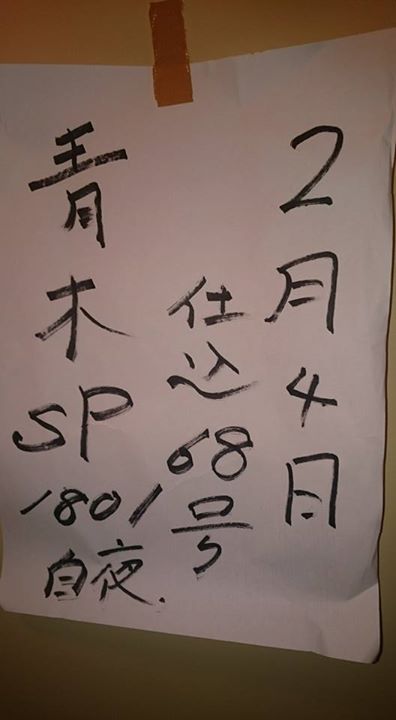 2月4日
仕込68号
青木SP1801白夜.